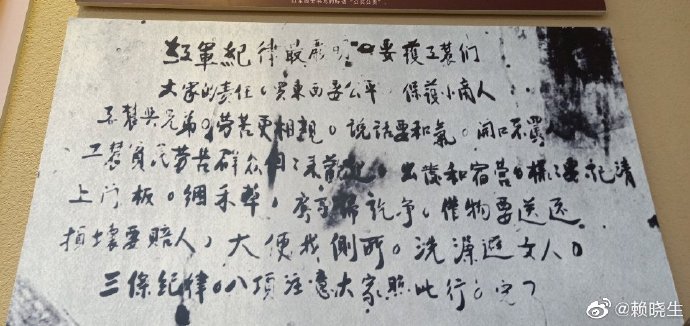 红軍紀律最嚴明。要護工農们
大家的責任。買東西要公平，保護小商人
工農與兄弟。勞苦更相親。說話要和氣。開口不罵人
工農貧苦勞苦群众 出發和宿營。樣樣要記清
上门板。綑禾草，房子掃乾净，借物要送还
損壞要賠人，大便找側所。洗澡避女人。
三條紀律。八項注意大家照此行。完了
@赖晓生